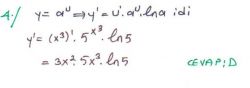 A./ y = aᵘ ⇒ y' = u'. aᵘ. lna idi
y' = (x³)'. 5^x³. ln5
= 3x². 5^x³. ln5 CEVAP; D